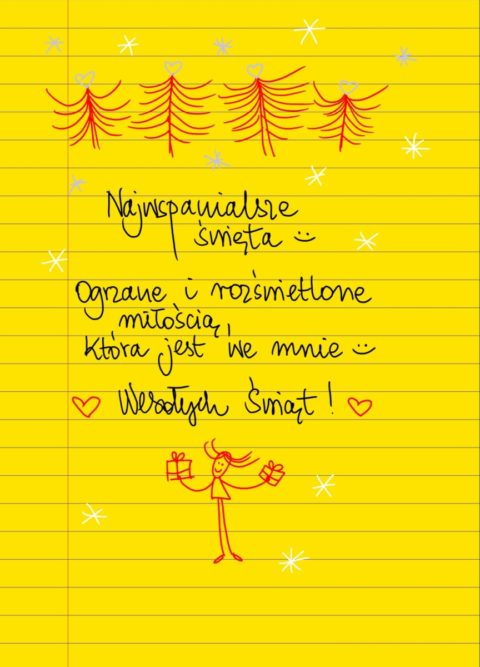 Najwspanialsze
święta :)
Ogrzane i rozświetlone
miłością,
która jest we mnie :)
Wesołych Świąt!